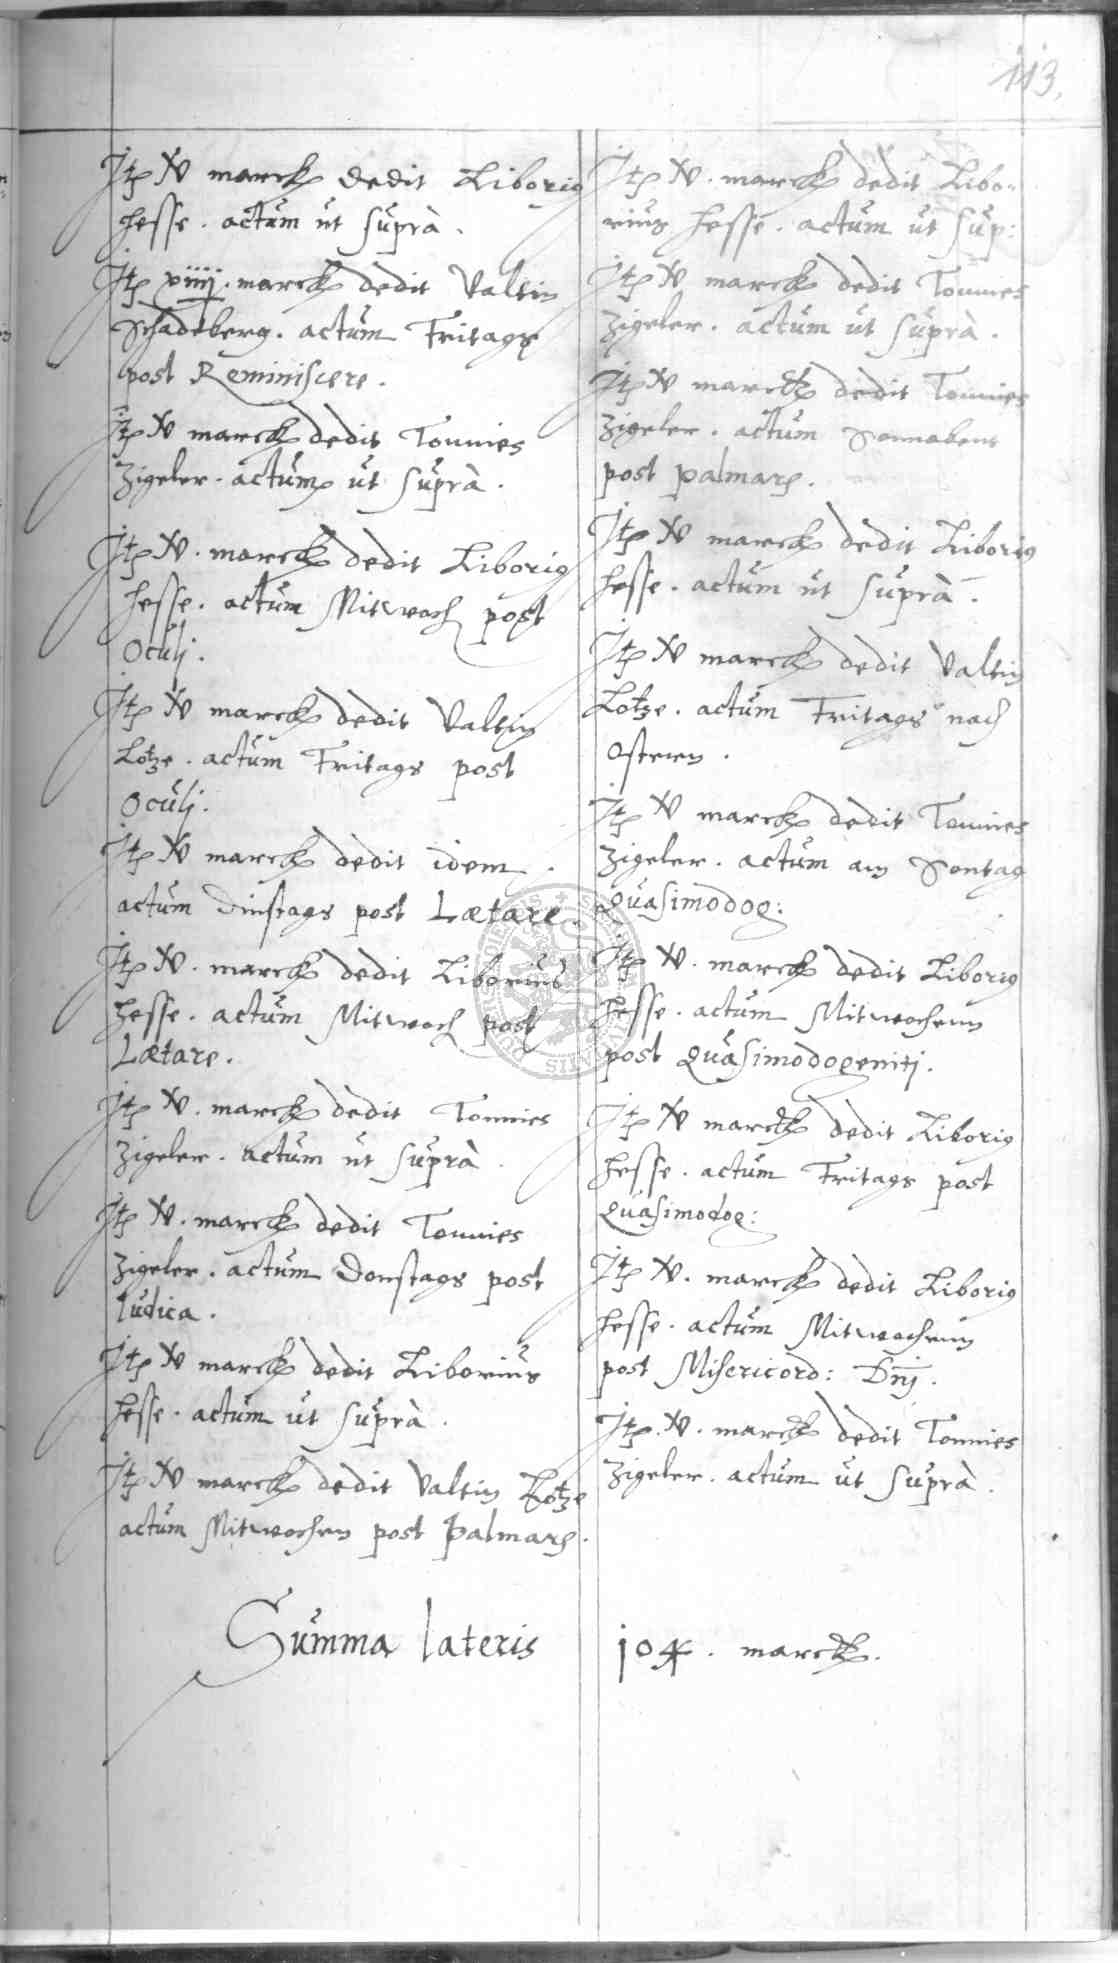 113.
Itp v marck dedit Liborius
Hesse. actum ut suprà.
Itp iiij. marck dedit Valtin
Schadeberg. actum Fritags
post Reminiscere.
Itp v marck dedit Tonnies
Zigeler. actum ut suprà.
Itp v. marck dedit Liborius
Hesse. actum Mitwoch post
Oculj.
Itp v marck dedit Valtin
Lotze. actum Fritags post
Oculj.
Itp v marck dedit idem.
actum Dinstags post Lætare.
Itp v. marck dedit Liborius
Hesse. actum Mitwoch post
Lætare.
Itp v. marck dedit Tonnies
Zigeler. actum ut suprà.
Itp v. marck dedit Tonnies
Zigeler. actum Donstags post
Iudica.
Itp v marck dedit Liborius
Hesse. actum ut suprà.
Itp v marck dedit Valtin Lotze
actum Mitwochen post Palmarum.
Itp v. marck dedit Libo-
rius Hesse. actum ut sup:
Itp v marck dedit Tonnies
Zigeler. actum ut suprà.
Itp v marck dedit Tonnies
Zigeler. actum Sonnabent
post palmarum.
Itp v marck dedit Liborius
Hesse. actum ut suprà.
Itp v marck dedit Valtin
Lotze. actum Fritags nach
Ostern.
Itp v marck dedit Tonnies
Zigeler. actum am Sontag
Quasimodog:
Itp v. marck dedit Liborius
Hesse. actum Mitwochenn
post Quasimodogenitj.
Itp v marck dedit Liborius
Hesse. actum Fritags post
Quasimodog:
Itp v. marck dedit Liborius
Hesse. actum Mitwochenn
post Misericord: Dnj.
Itp. v. marck dedit Tonnies
Zigeler. actum ut suprà.
Summa lateris 104. marck.